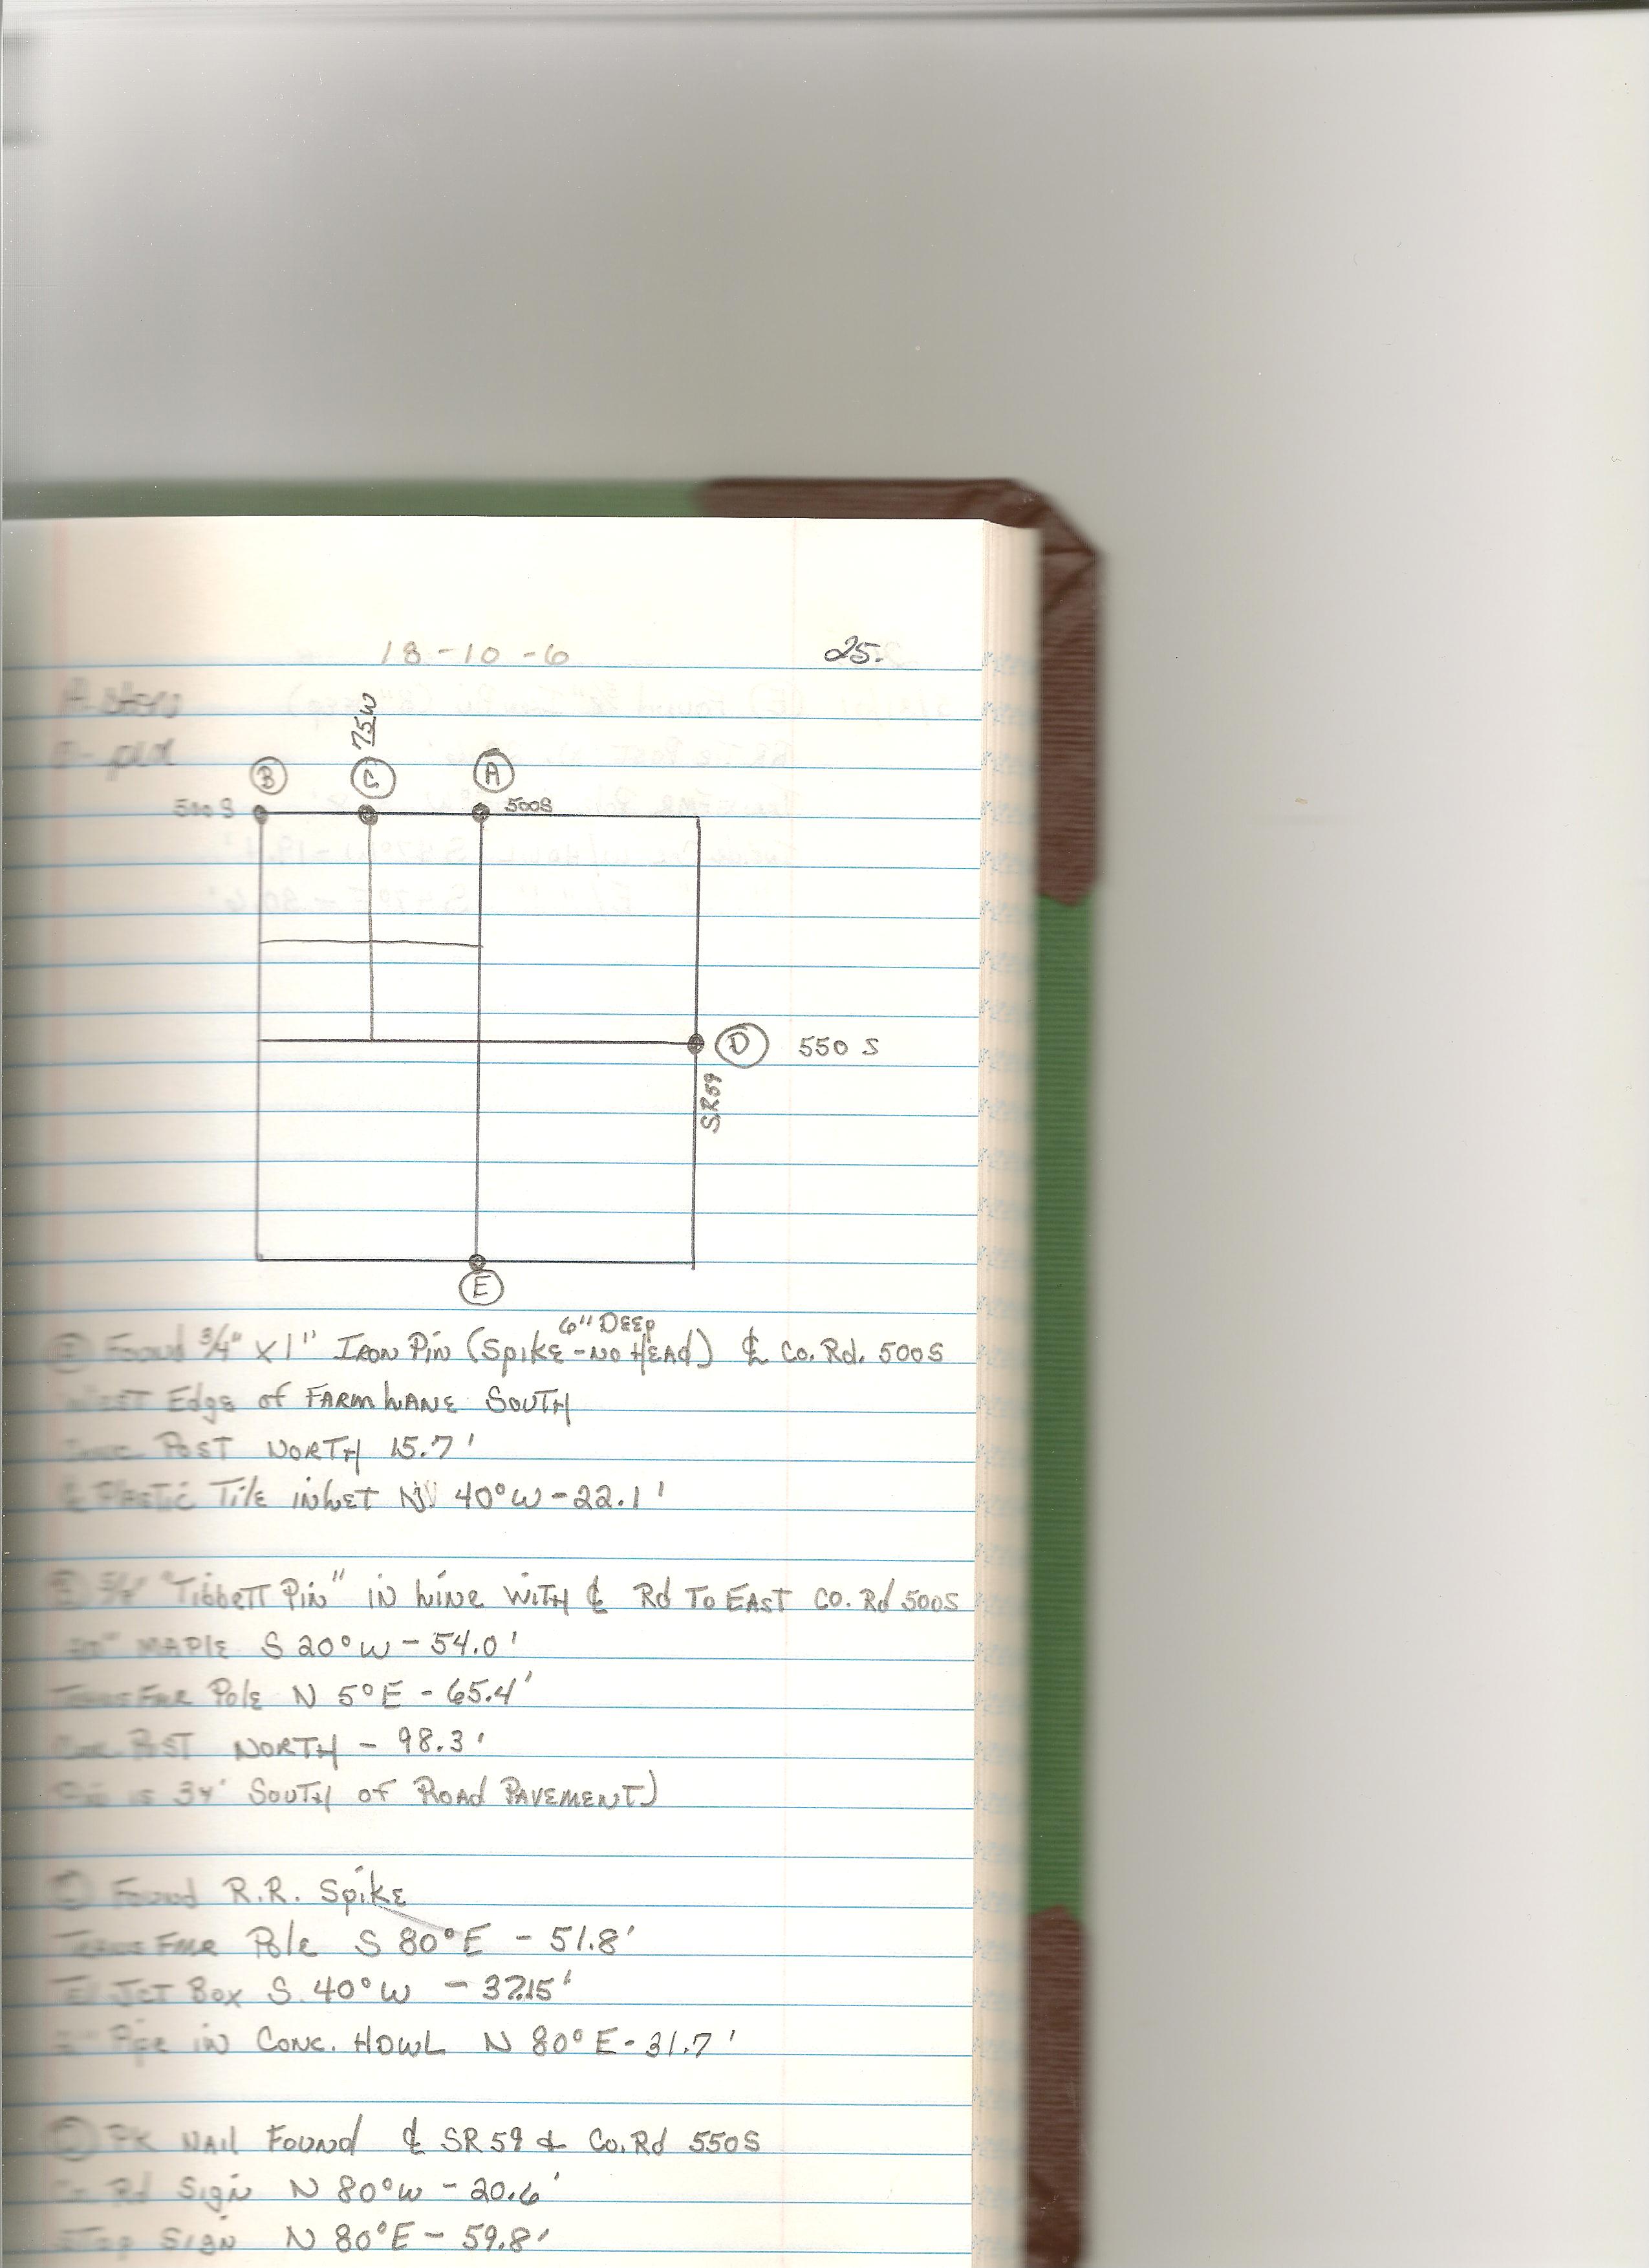 18-10-6
25.
A-stone
B- pin
75W
B C A
500S 500S
D 550 S
SR59
E
6" DEEP
Found 3/4" x 1" IRON PiN (Spike-NO HEAD) ℄ Co. Rd. 500S
WEST Edge of FARM LANE SOUTH
POST NORTH 15.7'
PLASTIC TilE iNLET N 40°W-22.1'
"TibbETT PiN" IN LiNE WiTH ℄ Rd To EAST CO. Rd 500S
MAPLE S 20°W - 54.0'
TRANSFMR PolE N 5°E - 65.4'
POST NORTH - 98.3'
is 34' SOUTH OF ROAD PAVEMENT)
Found R.R. Spike
TRANSFMR Pole S 80°E - 51.8'
TEL JCT BOX S. 40°W - 37.15'
Pipe iN CONC. HDWL N 80°E-31.7'
PK NAil FOUND ℄ SR59 & Co. Rd 550S
Rd SigN N 80°W - 20.6'
STOP SIGN N 80°E - 59.8'